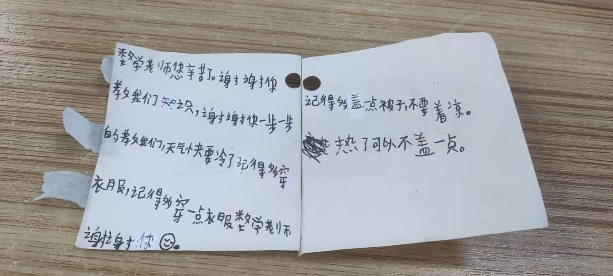 数学老师您辛苦了。谢谢你
教我们知识,谢谢你一步一步
的教我们,天气快要冷了记得多穿
衣服,记得多穿一点衣服数学老师
谢谢你
记得多盖点被子,不要着凉。
热了可以不盖一点。